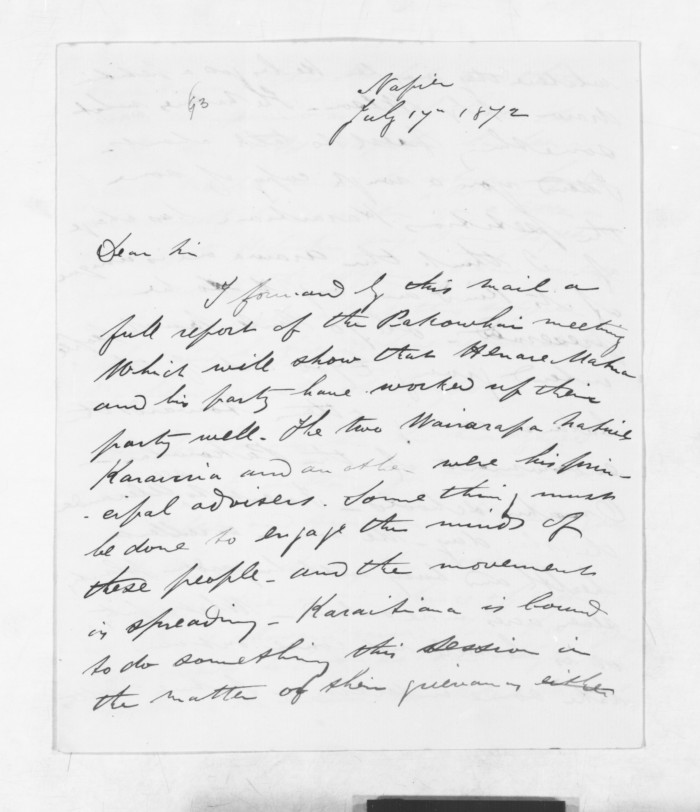 Napier
July 17th 1872
Dear Sir
I forward by this mail a
full report of the Pakowhai meeting
which will show that Henare Matua
and his party have worked up their
party well. The two Wairarapa natives
Karaitiana and another were his prin-
-cipal advisers. Something must
be done to engage the minds of
these people - and the movement
is spreading - Karaitiana is bound
to do something this session in
the matter of their grievances either